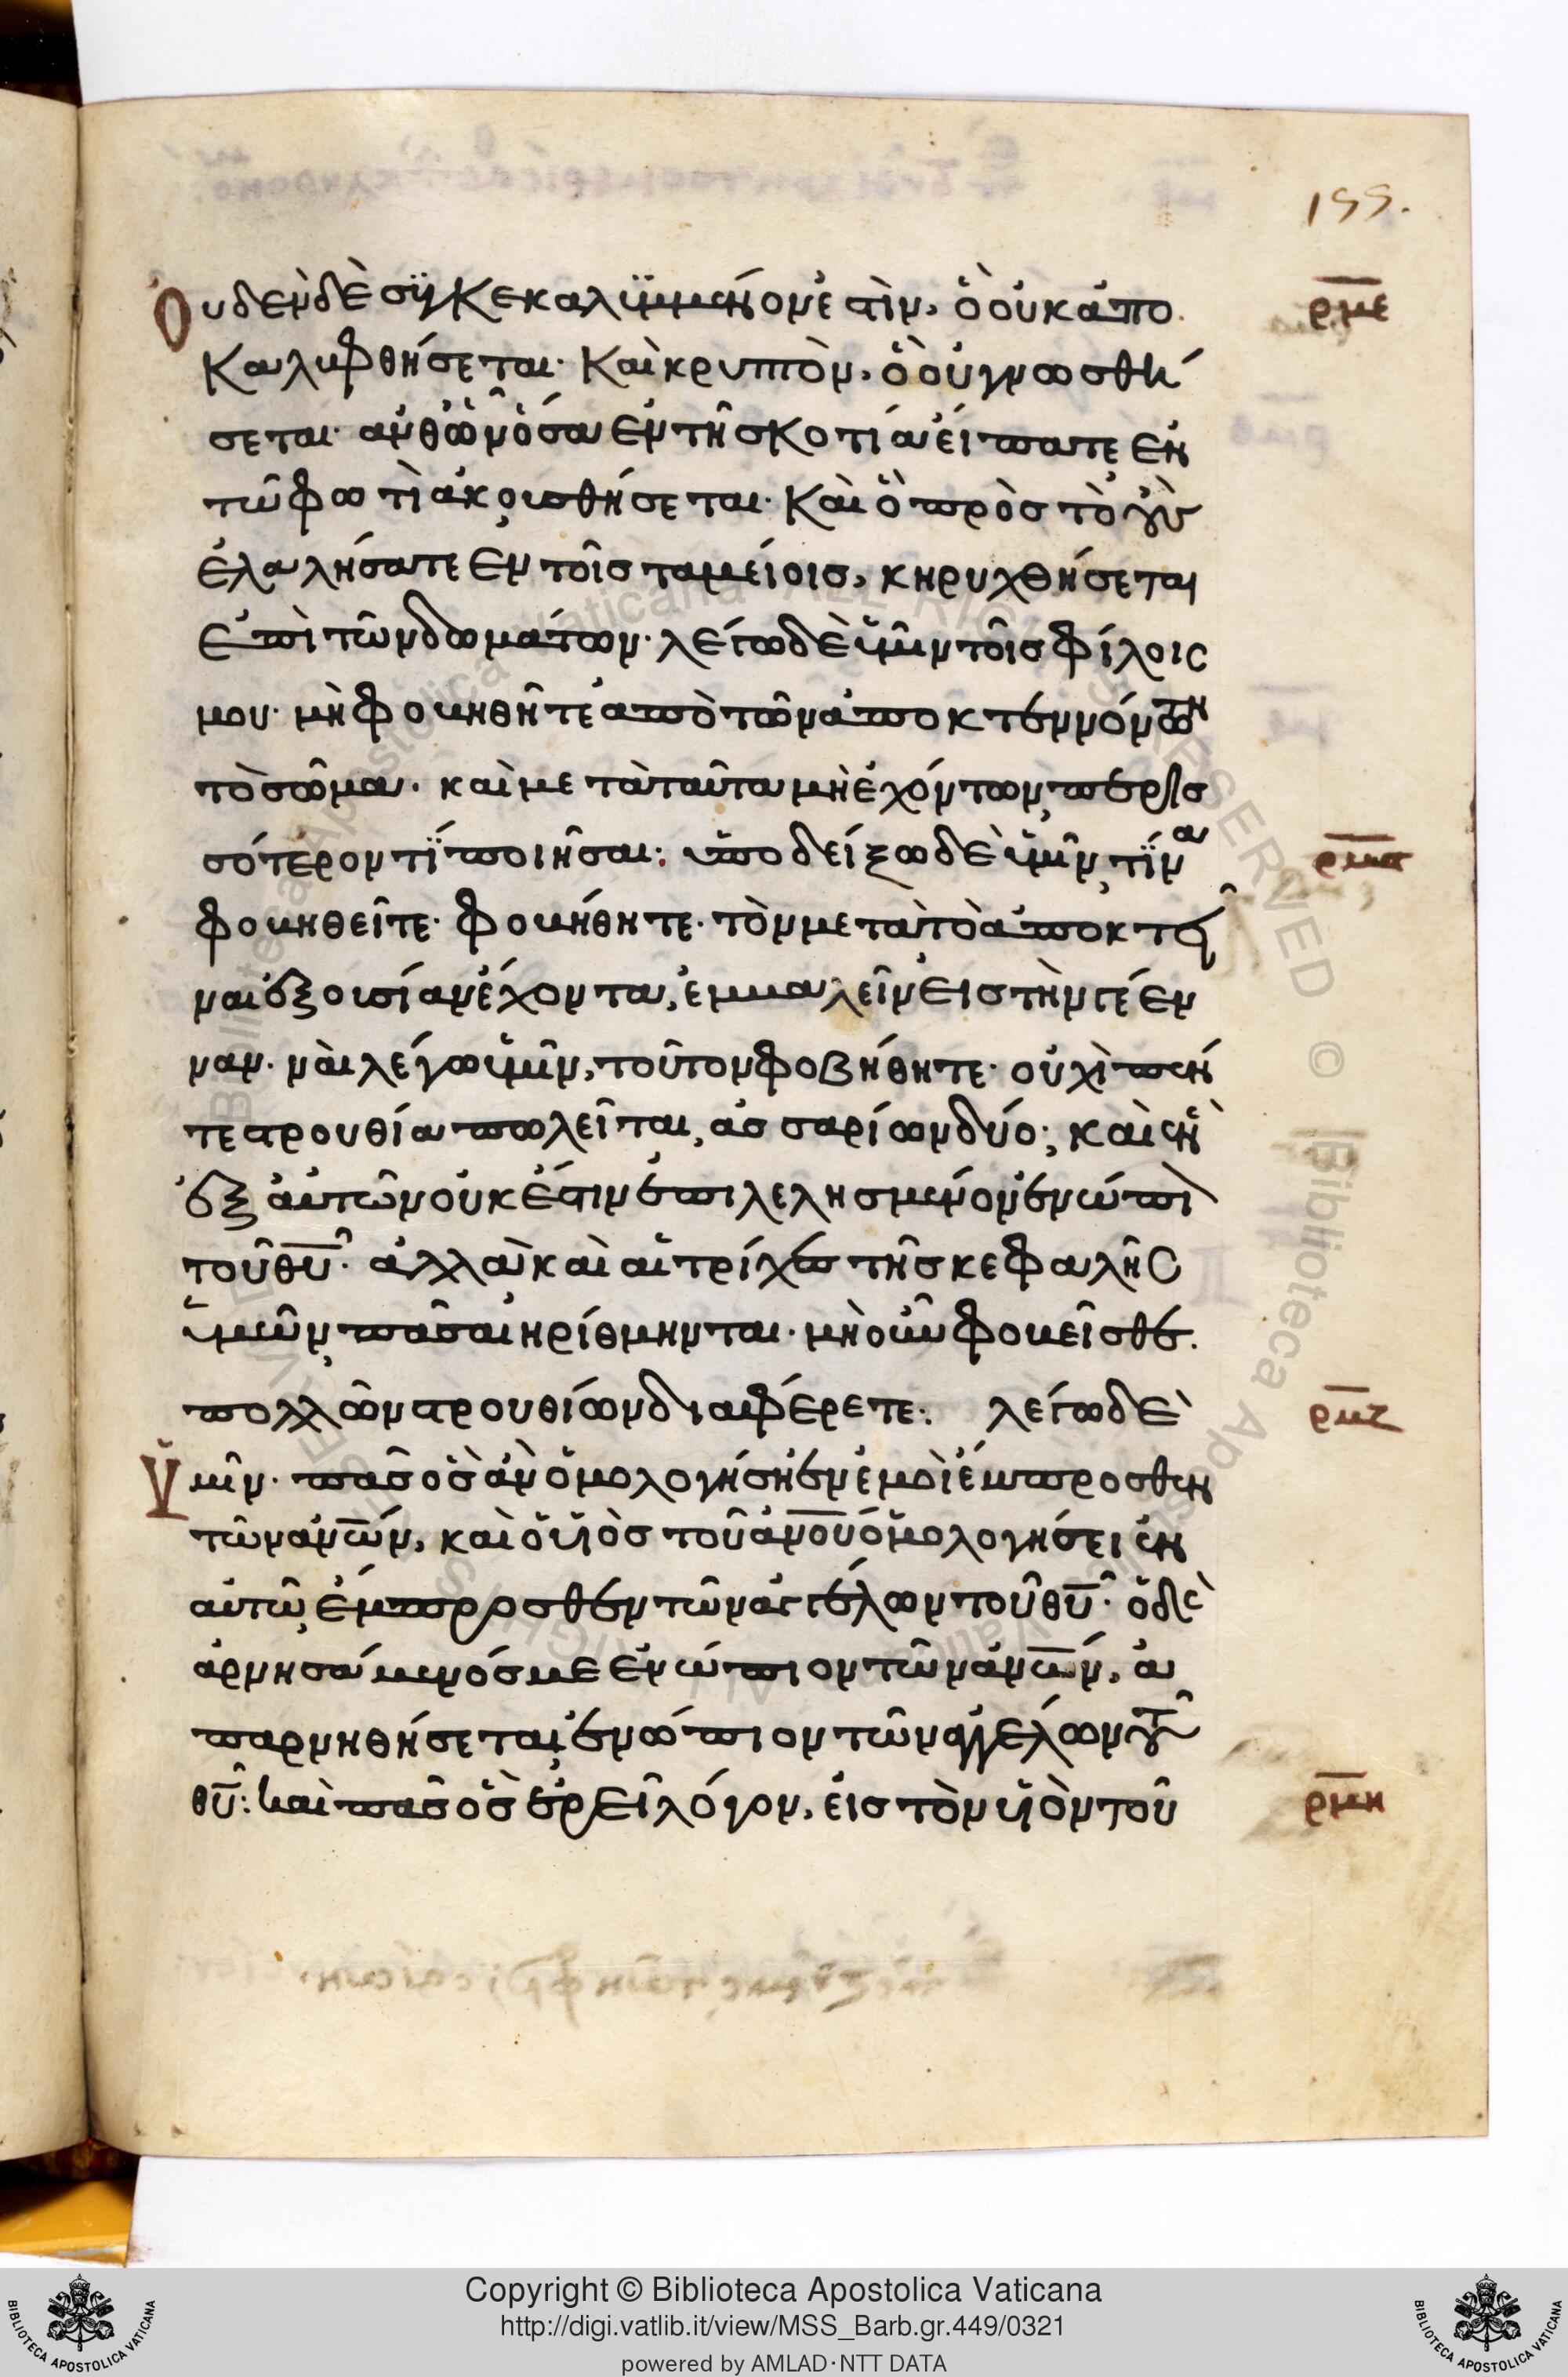 155.
Οὐδὲν δὲ συγκεκαλυμμένον ἐστὶν, ὃ οὐκ ἀπο
ρμε
καλυφθήσεται· καὶ κρυπτὸν, ὃ οὐ γνωσθή
σεται· ἀνθ' ὧν ὅσα ἐν τῇ σκοτίᾳ εἴπατε, ἐν
τῷ φωτὶ ἀκουσθήσεται· καὶ ὃ πρὸς τὸ οὖς
ἐλαλήσατε ἐν τοῖς ταμείοις, κηρυχθήσεται
ἐπὶ τῶν δωμάτων· λέγω δὲ ὑμῖν τοῖς φίλοις
μου· μὴ φοβηθῆτε ἀπὸ τῶν ἀποκτεννόντων
τὸ σῶμα· καὶ μετὰ ταῦτα μὴ ἐχόντων, περισ
σότερον τί ποιῆσαι: ὑποδείξω δὲ ὑμῖν, τίνα
ρμϛ
φοβηθεῖτε· φοβήθητε· τὸν μετὰ τὸ ἀποκτεῖ
ναι ἐξουσίαν ἔχοντα, ἐμβαλεῖν εἰς τὴν γέεν
ναν· ναὶ λέγω ὑμῖν, τοῦτον φοβήθητε· οὐχὶ πέν
τε στρουθία πωλεῖται, ἀσσαρίων δύο; καὶ ἓν
ἐξ αὐτῶν οὐκ ἔστιν ἐπιλελησμένον ἐνώπι
τοῦ θυ· ἀλλὰ καὶ αἱ τρίχες τῆς κεφαλῆς
ὑμῶν, πᾶσαι ἠρίθμηνται· μὴ οὖν φοβεῖσθε.
πολλῶν στρουθίων διαφέρετε: λέγω δὲ
ρμζ
ὑμῖν· πᾶς ὃς ἂν ὁμολογήσῃ ἐν ἐμοὶ ἔμπροσθεν
τῶν ανων, καὶ ὁ υἱὸς τοῦ ανου ὁμολογήσει ἐν
αὐτῷ, ἔμπροσθεν τῶν ἀγγέλων τοῦ θυ· ὁ δὲ
ἀρνησάμενός με ἐνώπιον τῶν ανων, ἀ
παρνηθήσεται, ἐνώπιον τῶν ἀγγέλων τοῦ
θυ: καὶ πᾶς ὃς ἐρεῖ λόγον, εἰς τὸν υἱὸν τοῦ
ρμη
Copyright © Biblioteca Apostolica Vaticana
http://digi.vatlib.it/view/MSS_Barb.gr.449/0321
powered by AMLAD·NTT DATA
BIBLIOTECA APOSTOLICA VATICANA
BIBLIOTECA APOSTOLICA VATICANA